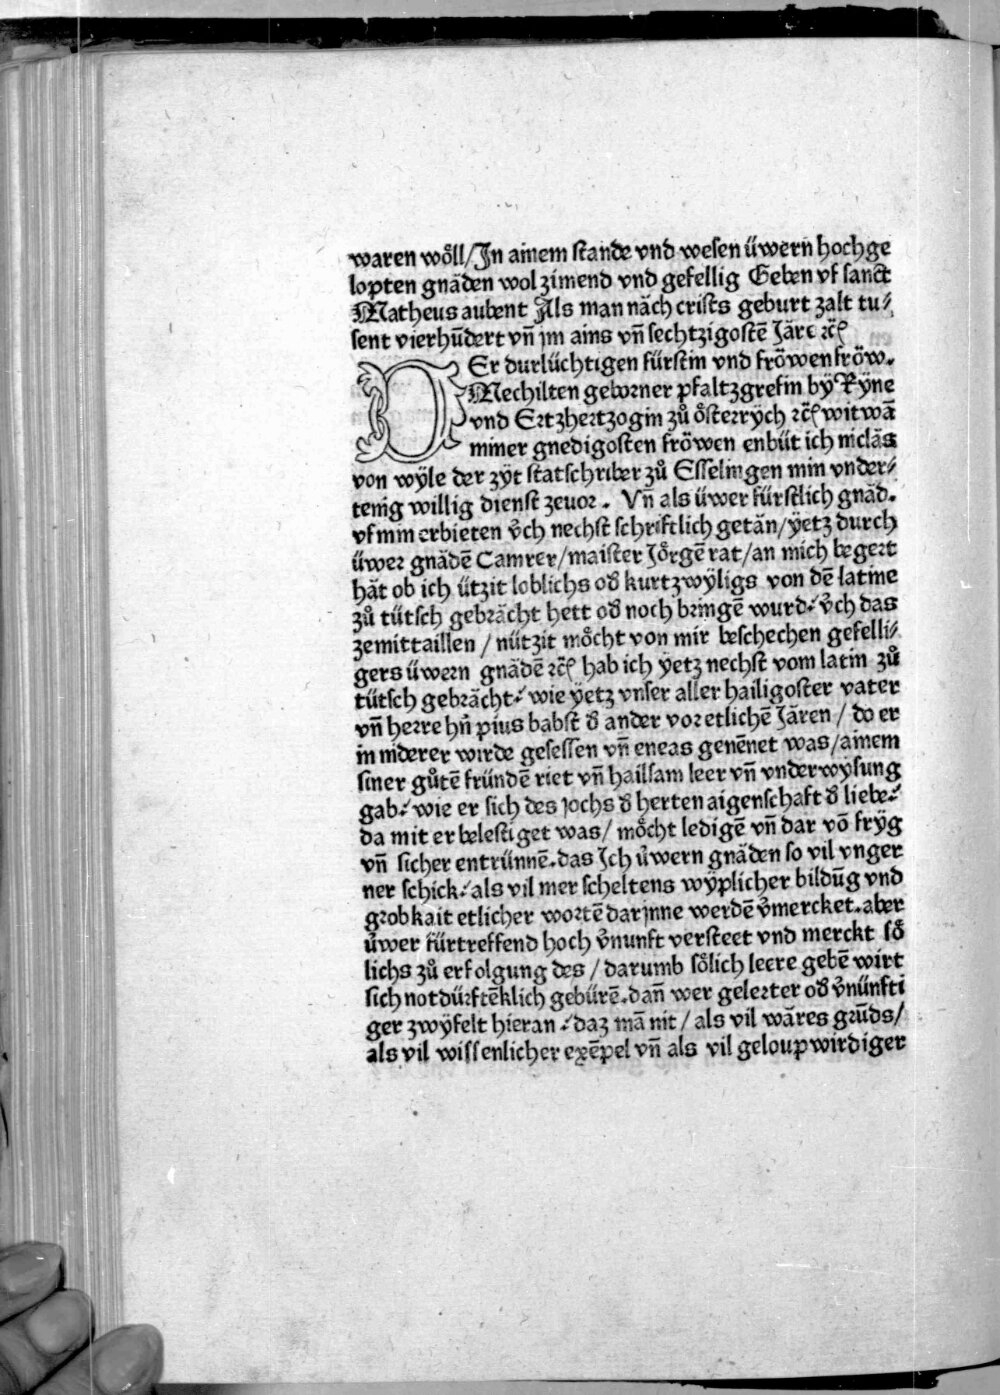 waren wöll/Jn ainem stande vnd wesen üwern hochge
lopten gnäden wol zimend vnd gefellig Geben vf sanct
Matheus aubent Als man näch crists geburt zalt tu⸗
sent vierhūdert vn̄ jm ains vn̄ sechtzigostē Järe ꝛc̄
DEr durlüchtigen fürstin vnd fröwen fröw.
Mechilten geborner pfaltzgrefin bÿ Rÿne
vnd Ertzhertzogin zů ősterrÿch ꝛc̄ witwā
miner gnedigosten fröwen enbüt ich niclās
von wÿle der zÿt statschriber zů Esselingen min vnder⸗
tenig willig dienst zeuor. Vn̄ als üwer fürstlich gnād.
vf min erbieten v̊ch nechst schriftlich getän/ÿetz durch
üwer gnädē Camrer/maister Jörgē rat/an mich begert
hät ob ich ützit loblichs od̕ kurtzwÿligs von dē latine
zů tütsch gebrächt hett od̕ noch bringē wurd: v̊ch das
zemittaillen/nützit möcht von mir beschechen gefelli⸗
gers üwern gnädē ꝛc̄ hab ich ÿetz nechst vom latin zů
tütsch gebrächt: wie ÿetz vnser aller hailigoster vater
vn̄ herre hn̄ pius babst d̕ ander vor etlichē Jären/do er
in niderer wirde gesessen vn̄ eneas genēnet was/ainem
siner gůtē fründē riet vn̄ hailsam leer vn̄ vnderwÿsung
gab: wie er sich des jochs d̕ herten aigenschaft d̕ liebe:
da mit er belestiget was/möcht ledigē vn̄ dar vō frÿg
vn̄ sicher entrünnē.das Jch üwern gnäden so vil vnger
ner schick: als vil mer scheltens wÿplicher bildūg vnd
grobkait etlicher wortē darjnne werdē v̕mercket.aber
üwer fürtreffend hoch v̕nunft versteet vnd merckt sö
lichs zů erfolgung des/darumb sölich leere gebē wirt
sich notdürftēklich gebürē.dan̄ wer gelerter od̕ v̕nünfti
ger zwÿfelt hieran: daz mā nit/als vil wāres grūds/
als vil wissenlicher exēpel vn̄ als vil geloupwirdiger